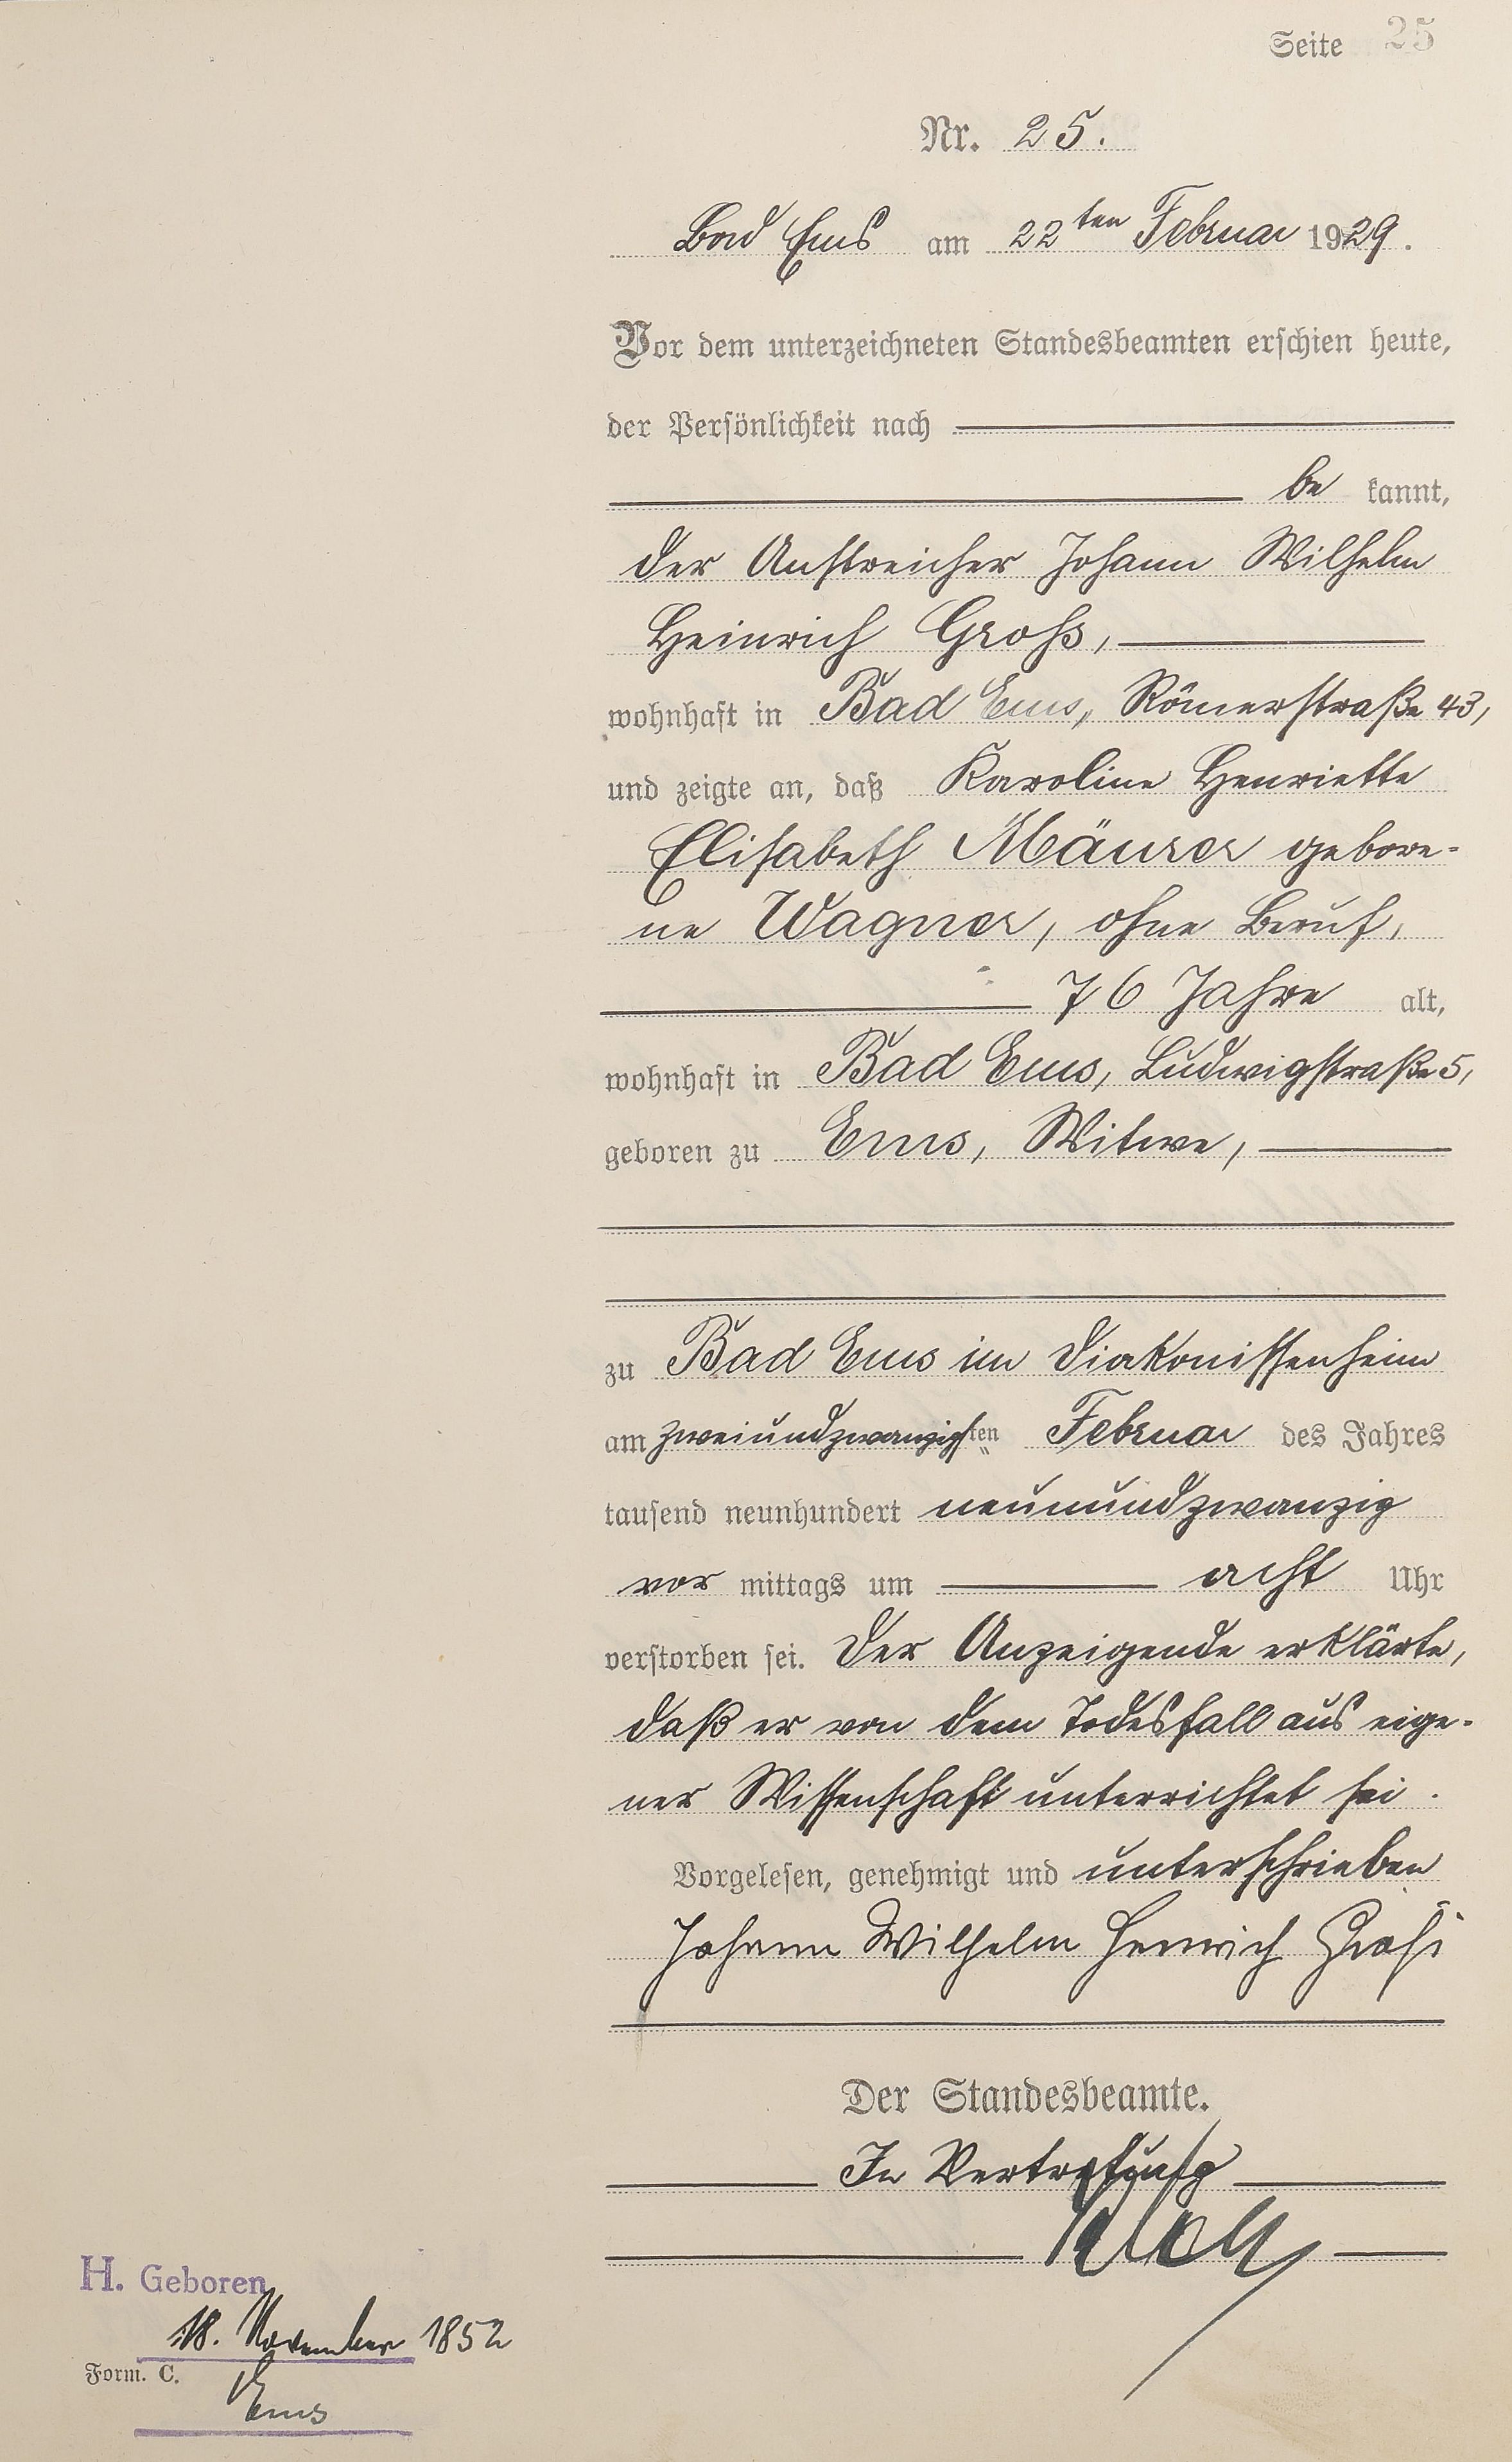 Seite 25
Nr. 25.
Bad Ems am 22ten Februar 1929.
Vor dem unterzeichneten Standesbeamten erschien heute,
der Persönlichkeit nach
be kannt,
der Anstreicher Johann Wilhelm
Heinrich Groß,
wohnhaft in Bad Ems, Römerstraße 43,
und zeigte an, daß Karoline Henriette
Elisabeth Mäurer gebore-
ne Wagner, ohne Beruf,
76 Jahre alt,
wohnhaft in Bad Ems, Ludwigstraße 5,
geboren zu Ems, Witwe,
zu Bad Ems im Diakonissenheim
am zweiundzwanzigsten Februar des Jahres
tausend neunhundert neunundzwanzig
vor mittags um acht Uhr
verstorben sei. Der Anzeigende erklärte,
daß er von dem Todesfall aus eige-
ner Wissenschaft unterrichtet sei.
Vorgelesen, genehmigt und unterschrieben
Johann Wilhelm Heinrich Groß
Der Standesbeamte.
In Vertretung
H. Geboren
18. November 1852
Form. C.
Ems